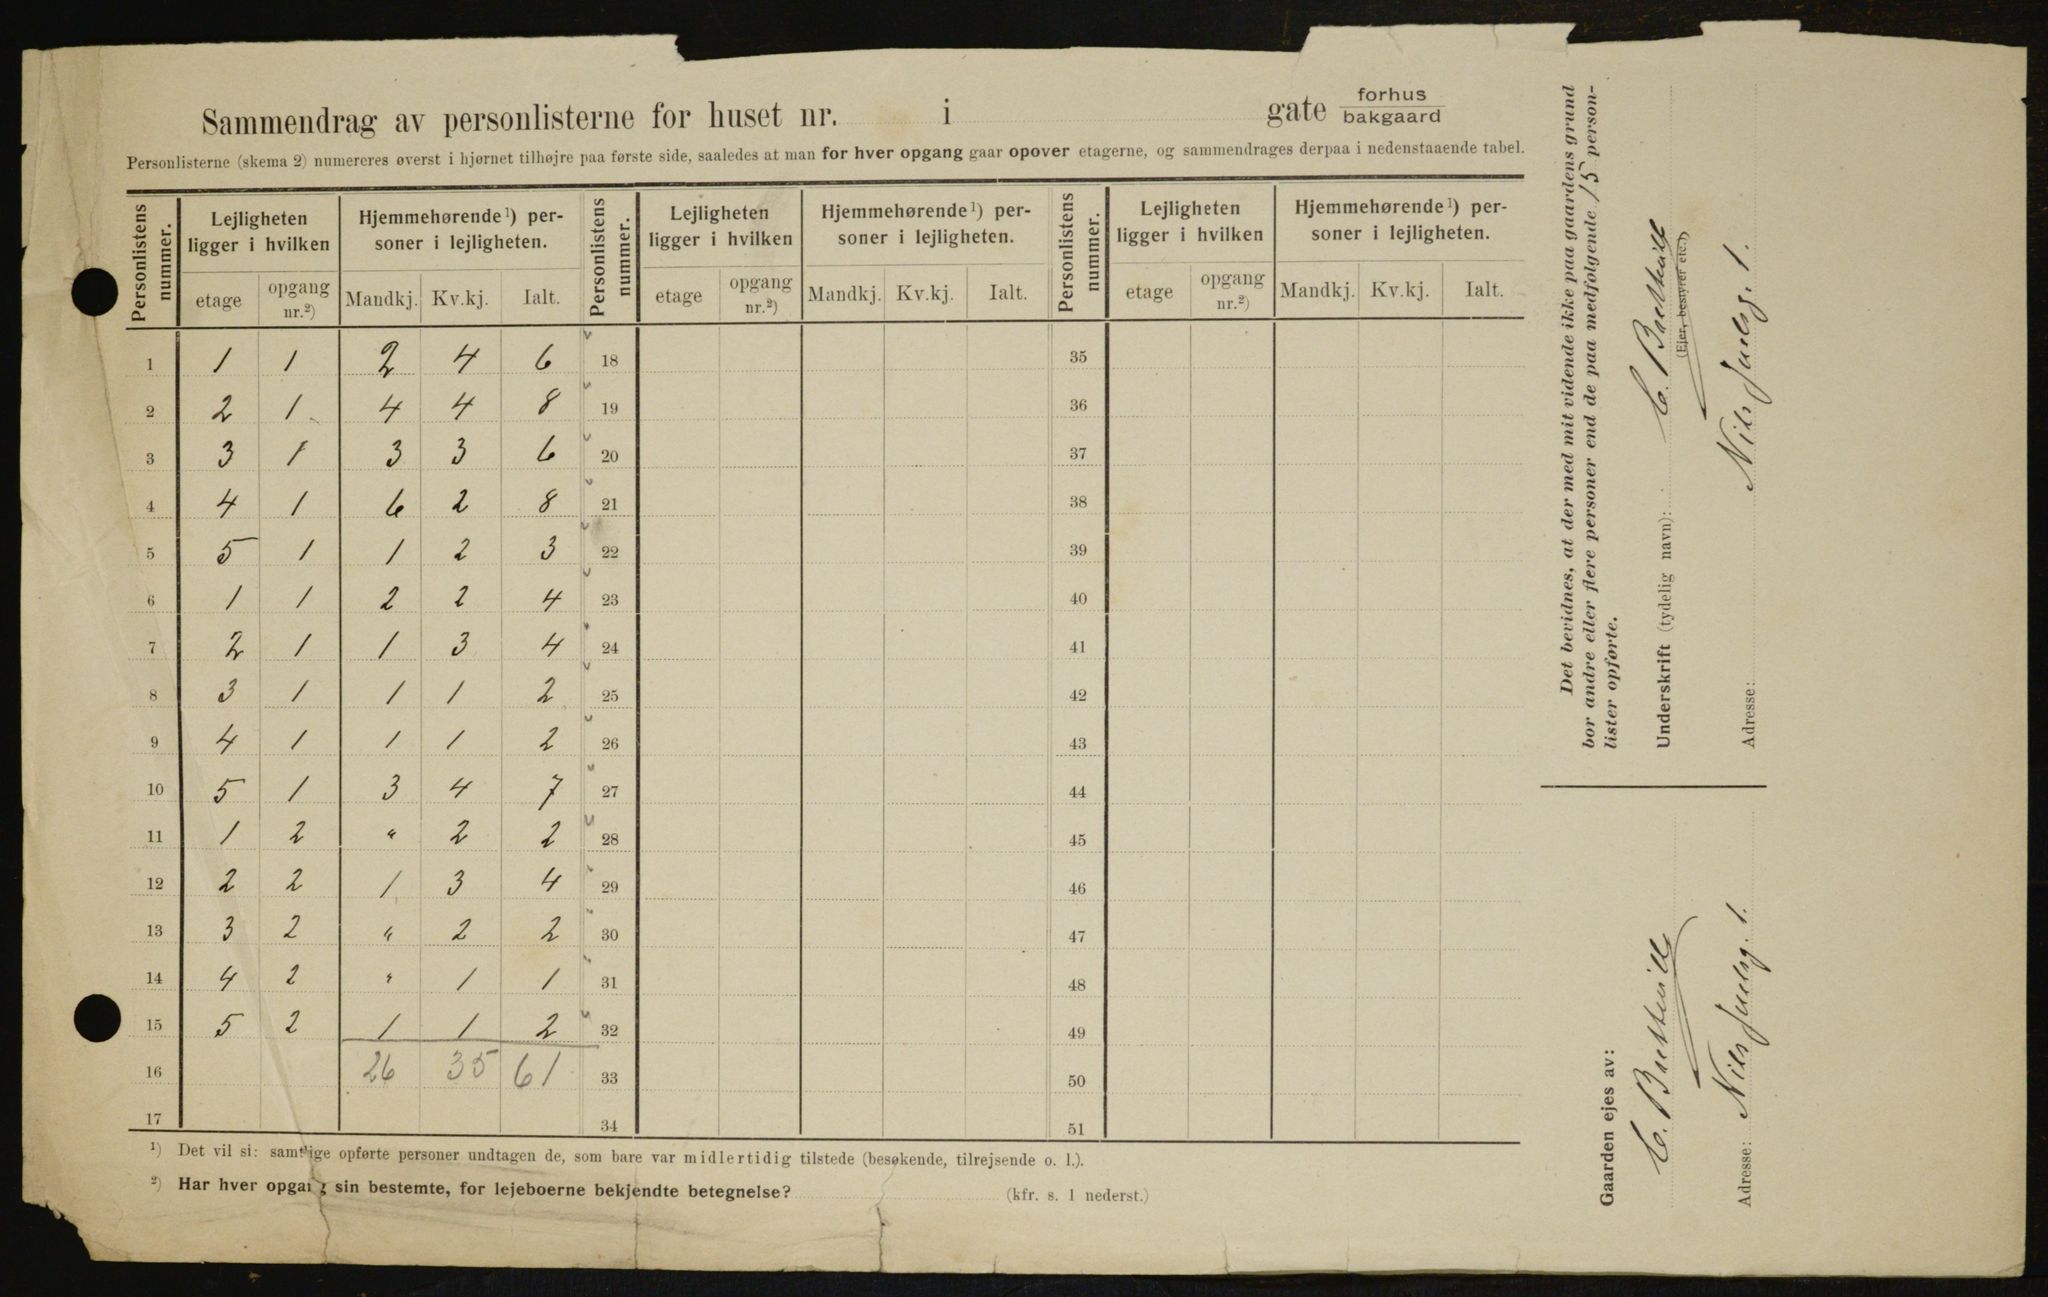 Sammendrag av personlisterne for huset nr. i gate forhus
bakgaard
Personlisterne (skema 2) numereres øverst i hjørnet tilhøjre paa første side, saaledes at man for hver opgang gaar opover etagerne, og sammendrages derpaa i nedenstaaende tabel.
Personlistens nummer. Lejligheten ligger i hvilken Hjemmehørende ¹) personer i lejligheten. Personlistens nummer. Lejligheten ligger i hvilken Hjemmehørende ¹) personer i lejligheten. Personlistens nummer. Lejligheten ligger i hvilken Hjemmehørende ¹) personer i lejligheten.
etage opgang nr.²) Mandkj. Kv.kj. Ialt. etage opgang nr.²) Mandkj. Kv.kj. Ialt. etage opgang nr.²) Mandkj. Kv.kj. Ialt.
1 1 1 2 4 6 18 35
2 2 1 4 4 8 19 36
3 3 1 3 3 6 20 37
4 4 1 6 2 8 21 38
5 5 1 1 2 3 22 39
6 1 1 2 2 4 23 40
7 2 1 1 3 4 24 41
8 3 1 1 1 2 25 42
9 4 1 1 1 2 26 43
10 5 1 3 4 7 27 44
11 1 2 " 2 2 28 45
12 2 2 1 3 4 29 46
13 3 2 " 2 2 30 47
14 4 2 " 1 1 31 48
15 5 2 1 1 2 32 49
16 26 35 61 33 50
17 34 51
¹) Det vil si: samtlige opførte personer undtagen de, som bare var midlertidig tilstede (besøkende, tilrejsende o. l.).
²) Har hver opgang sin bestemte, for lejeboerne bekjendte betegnelse? (kfr. s. 1 nederst.)
Det bevidnes, at der med mit vidende ikke paa gaardens grund
bor andre eller flere personer end de paa medfølgende 15 person-
lister opførte.
Underskrift (tydelig navn): C.
(Ejer, bestyrer etc.)
Adresse: Nils Juelsg. 1.
Gaarden ejes av:
C.
Adresse: Nils Juelsg. 1.